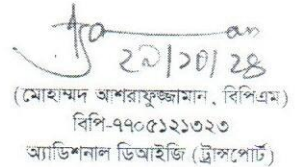 ২৯/১০/২৪
(মোহাম্মদ আশরাফুজ্জামান, বিপিএম)
বিপি-৭৭০৫১২১৩২৩
অ্যাডিশনাল ডিআইজি (ট্রান্সপোর্ট)